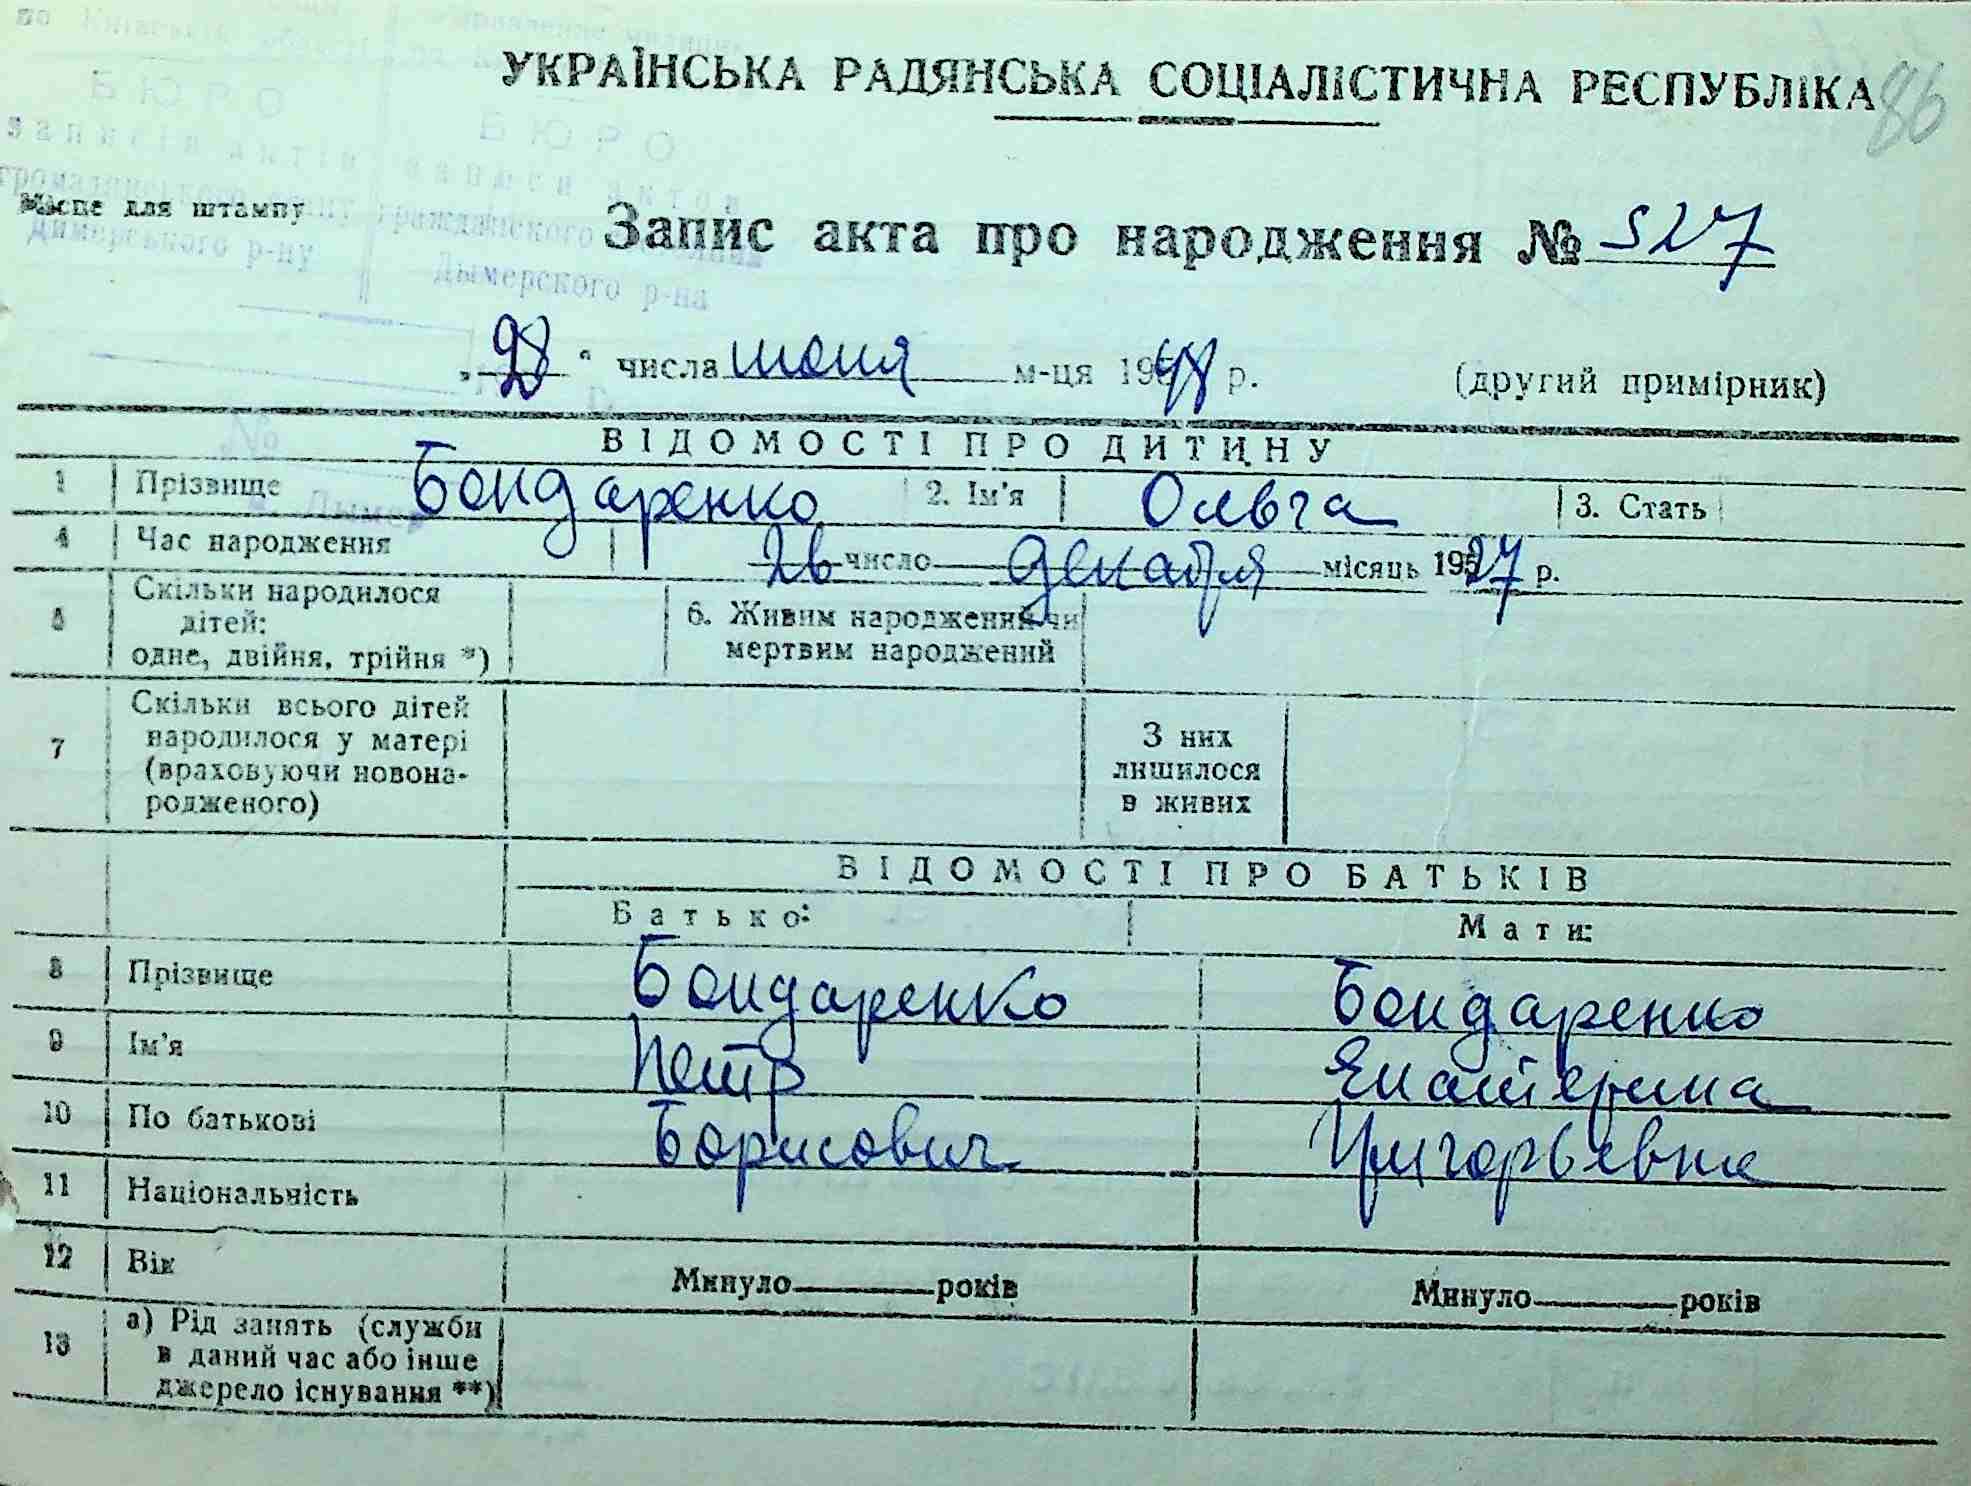 УКРАЇНСЬКА РАДЯНСЬКА СОЦІАЛІСТИЧНА РЕСПУБЛІКА
86
БЮРО
БЮРО
записів актів
записи актов
громадянського стану
гражданского состояния
Димерського р-ну
Дымерского р-на
Місце для штампу
Запис акта про народження № 527
„28“ числа июня м-ця 1948 р. (другий примірник)
ВІДОМОСТІ ПРО ДИТИНУ
1 Прізвище Бондаренко 2. Ім'я Ольга 3. Стать
4 Час народження 26 число декабря місяць 1927 р.
5 Скільки народилося дітей: одне, двійня, трійня *) 6. Живим народжений чи мертвим народжений
7 Скільки всього дітей народилося у матері (враховуючи новонародженого) З них лишилося в живих
ВІДОМОСТІ ПРО БАТЬКІВ
Батько: Мати:
8 Прізвище Бондаренко Бондаренко
9 Ім'я Петр Екатерина
10 По батькові Борисович Григорьевна
11 Національність
12 Вік Минуло років Минуло років
13 а) Рід занять (служби в даний час або інше джерело існування **)